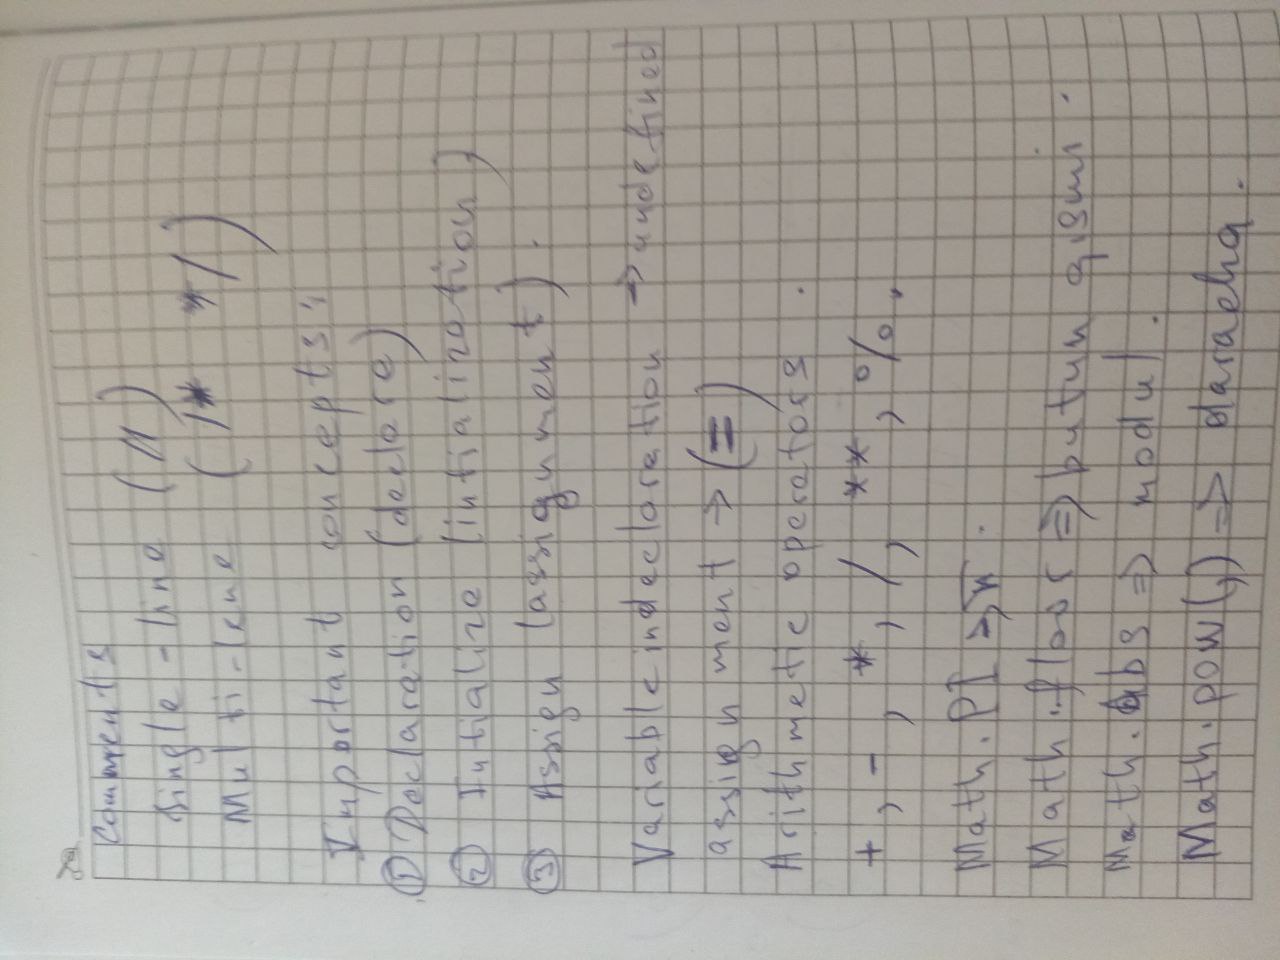 Comments
Single-line (//)
Multi-line (/* */)
Important concepts:
① Declaration (declare)
② Initialize (initialization)
③ Assign (assignment).
Variable in declaration → undefined
assignment → (=)
Arithmetic operators.
+, -, *, /, **, %.
Math.PI → π.
Math.floor => butun qismi.
Math.abs => modul.
Math.pow(,) => daracha.